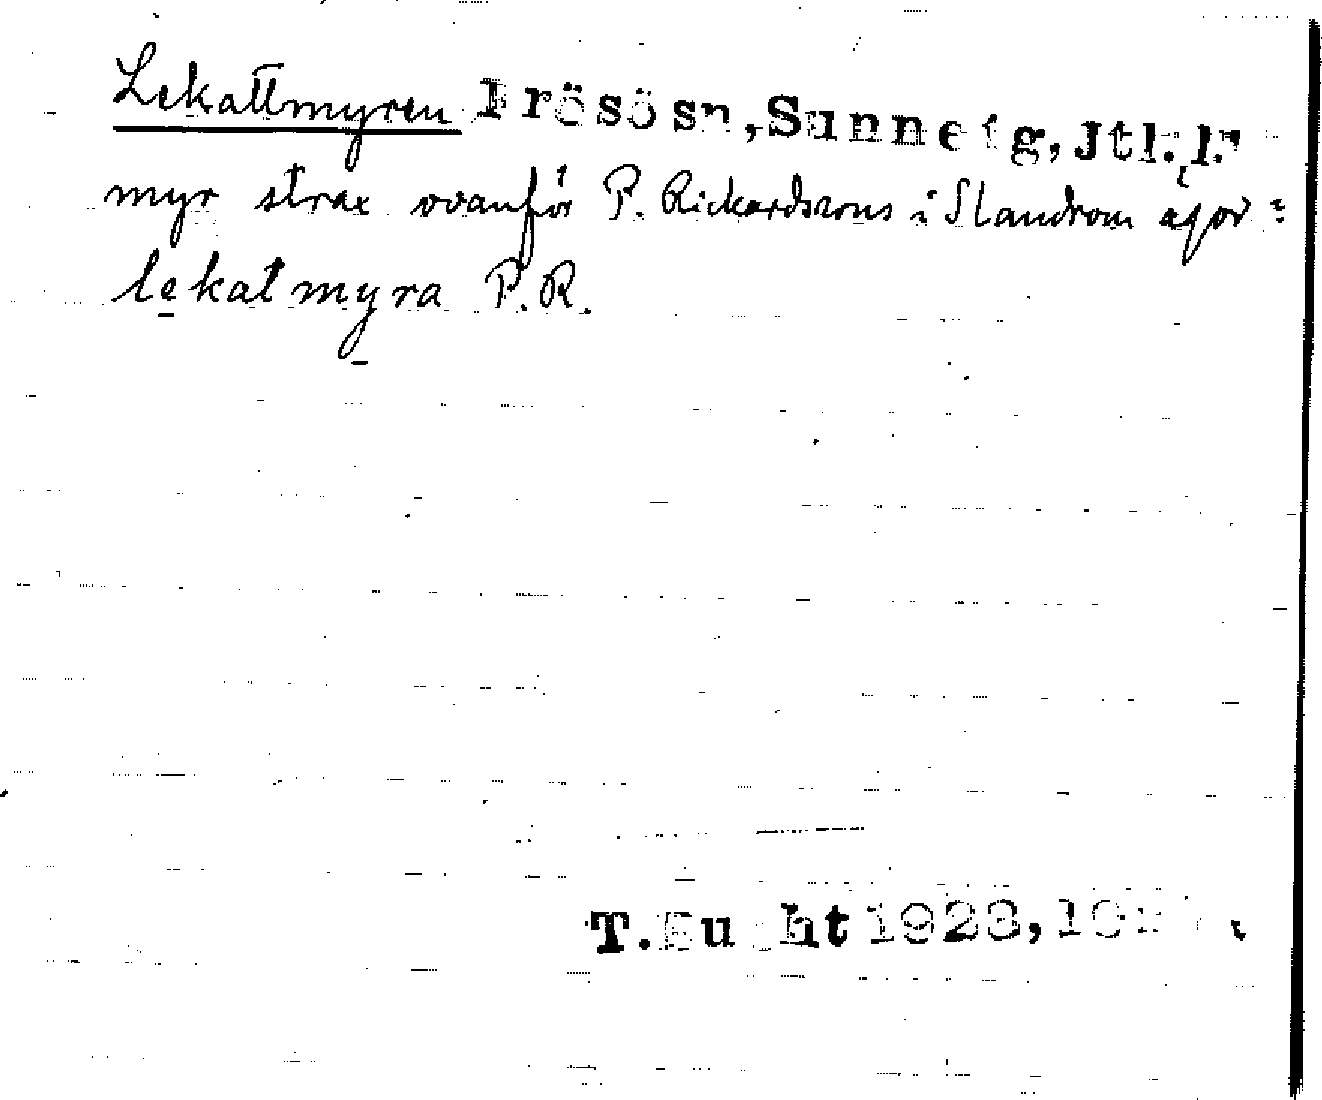 Lekattmyren Frösösn, Sunne tg, Jtl. l.
myr strax ovanför P. Rickardssons i Slandrom ägor:
lekatmyra P. R.
T. Bucht 1923,